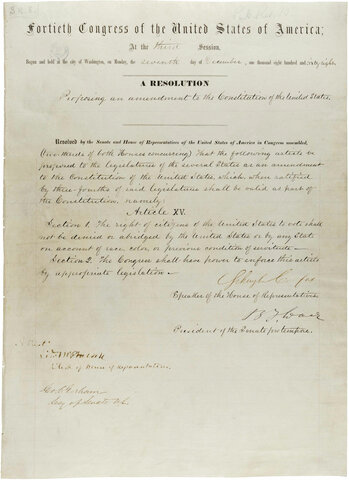 Fortieth Congress of the United States of America;
At the third Session,
Begun and held at the city of Washington, on Monday, the seventh day of December, one thousand eight hundred and sixty-eight
A RESOLUTION
Proposing an amendment to the Constitution of the United States.
Resolved by the Senate and House of Representatives of the United States of America in Congress assembled,
(two-thirds of both Houses concurring) That the following article be
proposed to the legislatures of the several States as an amendment
to the Constitution of the United States which, when ratified
by three-fourths of said legislatures shall be valid as part of
the Constitution, namely:
Article XV.
Section 1. The right of citizens of the United States to vote shall
not be denied or abridged by the United States or by any State
on account of race, color, or previous condition of servitude—
Section 2. The Congress shall have power to enforce this article
by appropriate legislation—
Speaker of the House of Representatives.
B. F. Wade
President of the Senate pro tempore.
Attest:
Clerk of House of Representatives.
Geo. C. Gorham
Secy of Senate U.S.